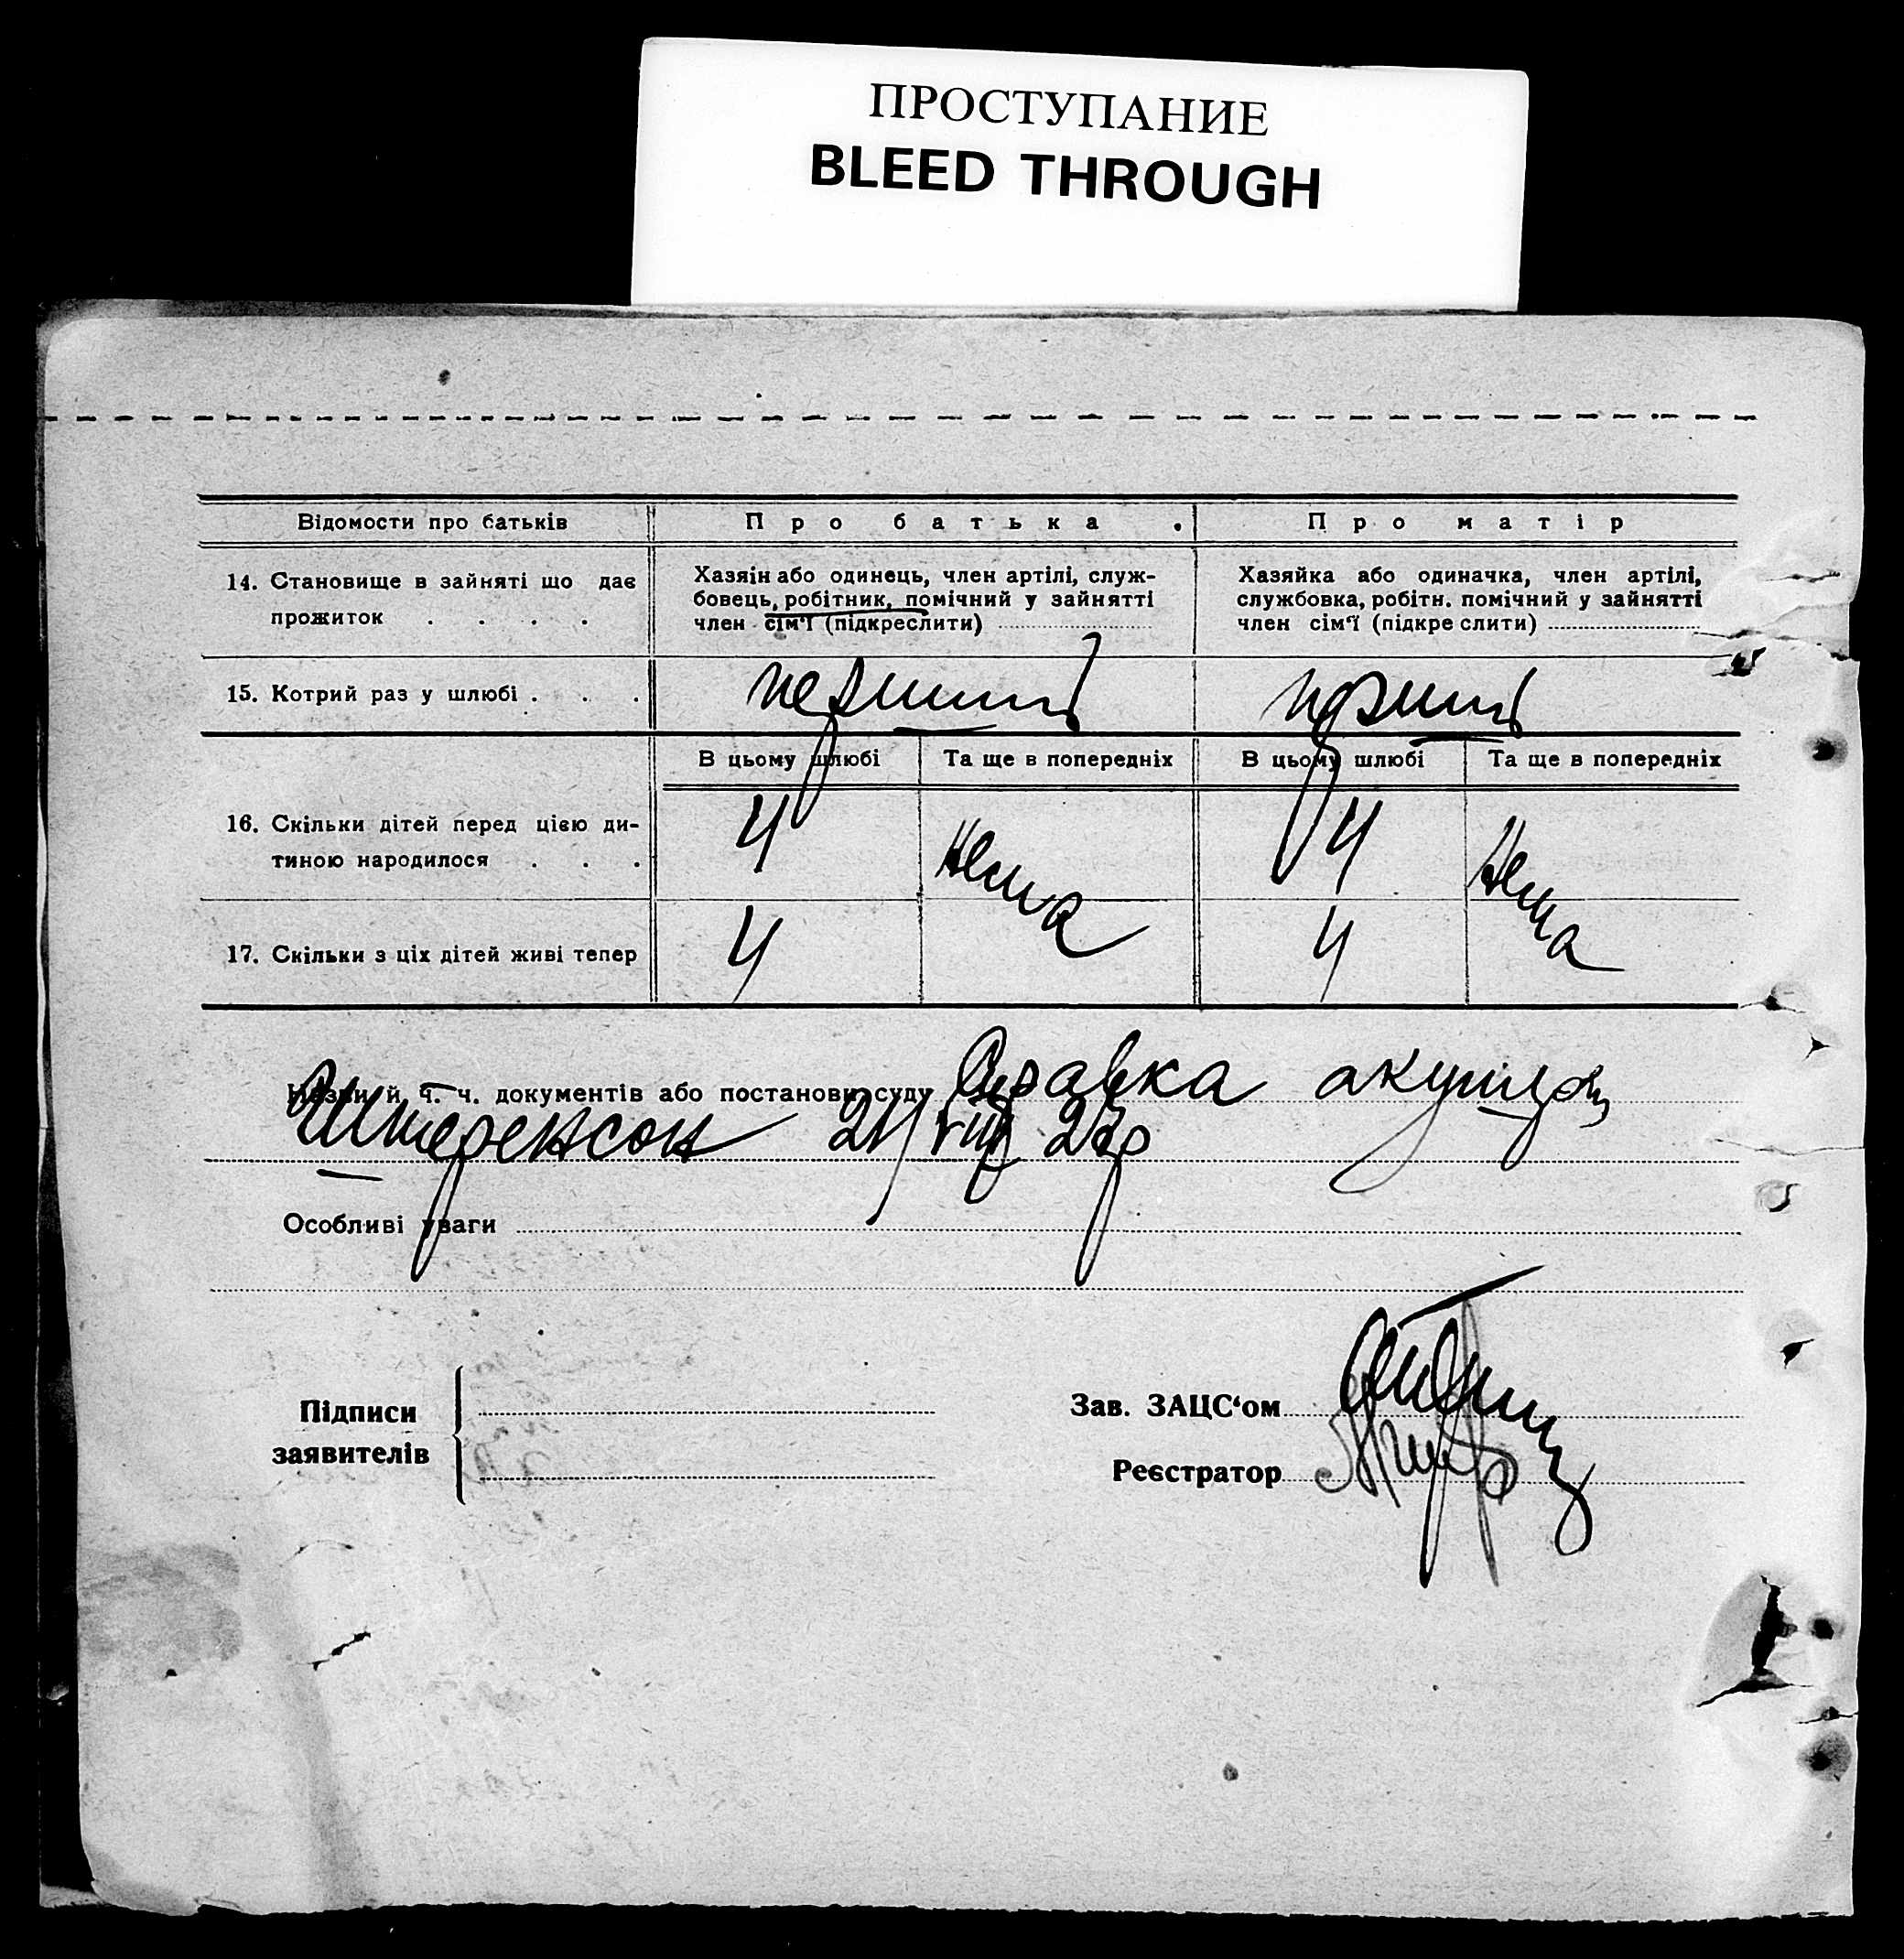 ПРОСТУПАНИЕ
BLEED THROUGH
Відомости про батьків
Про батька
Про матір
14. Становище в зайняті що дає
прожиток . . . .
Хазяїн або одинець, член артілі, служ-
бовець, робітник, помічний у зайнятті
член сім'ї (підкреслити)
Хазяйка або одиначка, член артілі,
службовка, робітн. помічний у зайнятті
член сім'ї (підкреслити)
15. Котрий раз у шлюбі . . .
перший
перший
В цьому шлюбі
Та ще в попередніх
В цьому шлюбі
Та ще в попередніх
16. Скільки дітей перед цією ди-
тиною народилося . . .
4
Нема
4
Нема
17. Скільки з ціх дітей живі тепер
4
4
Назви й ч. ч. документів або постанови суду Справка акушерки
Штеренсон 21/VIII
Особливі уваги
Підписи
заявителів
Зав. ЗАЦС'ом
Реєстратор